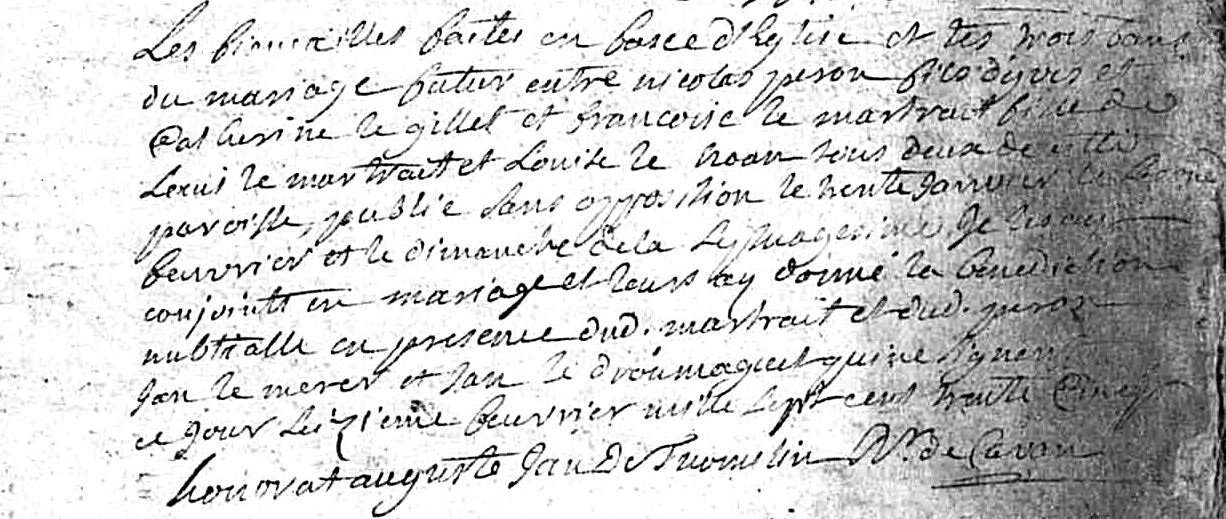 Les fiancailles faites en face d'Eglise et les trois bans
du mariage futur entre nicolas peron fils d'yves et
Catherine le gillet et francoise le martrait fille de
Louis le martrait et Louise le hoan tous deux de cette
paroisse, publie sans opposition le trente Janvier le second
feuvrier et le dimanche de la septuagesime Je les ay
conjoints en mariage et leurs ay donné la benediction
nubtialle en presence dud. martrait et dud.
Jan le merer et Jan le droumaguet qui ne signent
ce jour seizieme feuvrier mille sept cens trente Cincq
honorat auguste Jan De Tromelin Rr. de Cavan